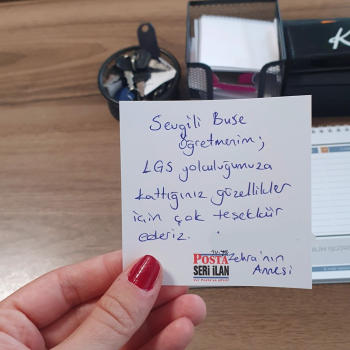 Sevgili Buse
Öğretmenim;
LGS yolculuğumuza
kattığınız güzellikler
için çok teşekkür
ederiz.
Zehra'nın
Annesi
POSTA
SERİ İLAN
K